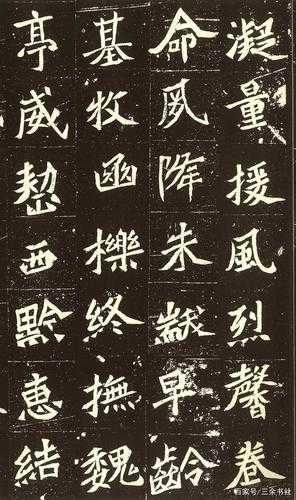 凝量援風烈馨眷
命夙降未早齡
基牧函櫟終撫魏
亭威西黔惠結
百家号/三余书社